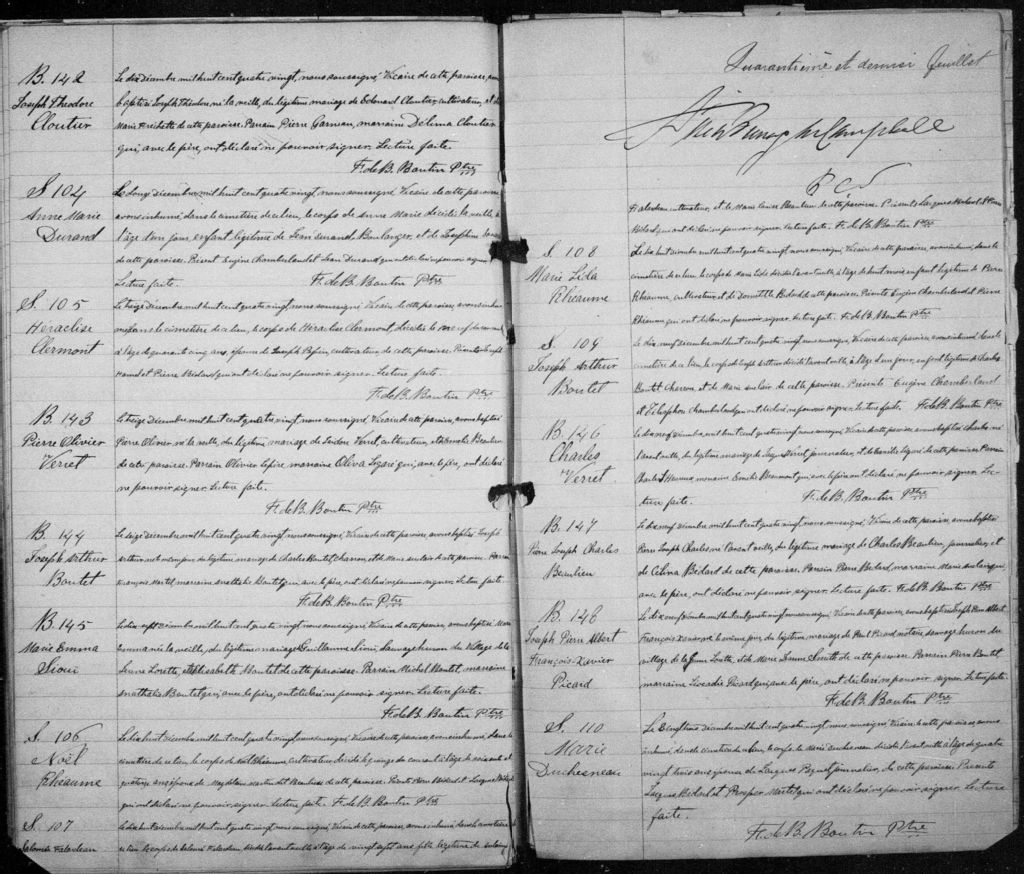 B. 142
Joseph Théodore
Cloutier
Le dix décembre mil huit cent quatre vingt, nous soussigné, Vicaire de cette paroisse,
baptisé Joseph Théodore né la veille, du légitime mariage de Edouard Cloutier cultivateur, et de
Marie Frechette de cette paroisse. Parrain Pierre marraine Délima Cloutier
qui, avec le père, ont déclaré ne pouvoir signer. Lecture faite.
F. de B. Boutin Ptre
S. 104
Anne Marie
Durand
Le douze décembre mil huit cent quatre vingt, nous soussigné, Vicaire de cette paroisse
avons inhumé dans le cimetière de ce lieu, le corps de Anne Marie décédée la veille, à
l'âge d'un jour, enfant légitime de Jean Durand Boulanger, et de Joséphine
de cette paroisse. Présents Eugène Chamberland et Jean Durand qui ont déclaré ne pouvoir signer.
Lecture faite. F. de B. Boutin Ptre
S. 105
Héraclise
Clermont
Le treize décembre mil huit cent quatre vingt, nous soussigné, Vicaire de cette paroisse, avons inhumé
dans le cimetière de ce lieu, le corps de Héraclise Clermont, décédée le neuf du courant
à l'âge de quarante cinq ans, épouse de Joseph Pepin, cultivateur de cette paroisse. Présents Joseph
Hamel et Pierre Bédard qui ont déclaré ne pouvoir signer. Lecture faite.
F. de B. Boutin Ptre
B. 143
Pierre Olivier
Verret
Le treize décembre mil huit cent quatre vingt, nous soussigné, Vicaire de cette paroisse, avons baptisé
Pierre Olivier né la veille, du légitime mariage de Verret, cultivateur, et de Beaulieu
de cette paroisse. Parrain Olivier marraine Oliva Légaré qui, avec le père, ont déclaré
ne pouvoir signer. Lecture faite.
F. de B. Boutin Ptre
B. 144
Joseph Arthur
Boutet
Le seize décembre mil huit cent quatre vingt, nous soussigné, Vicaire de cette paroisse avons baptisé Joseph
Arthur du légitime mariage de Charles Boutet charron, et de Marie de cette paroisse. Parrain
François Martel marraine Boutet qui, avec le père, ont déclaré ne pouvoir signer. Lecture faite.
F. de B. Boutin Ptre
B. 145
Marie Emma
Sioui
Le dix-sept décembre mil huit cent quatre vingt, nous soussigné, Vicaire de cette paroisse, avons baptisé Marie
Emma née la veille, du légitime mariage de Guillaume Sioui, Sauvage huron du Village de la
Jeune Lorette, et de Elisabeth Boutet de cette paroisse. Parrain Michel Boutet, marraine
Mathilde Boutet qui, avec le père, ont déclaré ne pouvoir signer. Lecture faite.
F. de B. Boutin Ptre
S. 106
Noël
Rhéaume
Le dix huit décembre mil huit cent quatre vingt, nous soussigné, Vicaire de cette paroisse, avons inhumé, dans le
cimetière de ce lieu, le corps de Noël Rhéaume cultivateur, décédé le quinze du courant à l'âge de soixante et
quatorze ans époux de Beaulieu de cette paroisse. Présents Pierre Bédard et Jacques
qui ont déclaré ne pouvoir signer. Lecture faite. F. de B. Boutin Ptre
S. 107
Salomée Falardeau
Le dix huit décembre mil huit cent quatre vingt, nous soussigné, Vicaire de cette paroisse, avons inhumé dans le cimetière
de ce lieu le corps de Salomée Falardeau, décédée l'avant veille à l'âge de vingt sept ans fille légitime de
Quarantième et dernier feuillet
Campbell
P C S
Falardeau cultivateur, et de Marie Louise Beaulieu de cette paroisse. Présents Jacques Bédard et Pierre
Bédard, qui ont déclaré ne pouvoir signer. Lecture faite. F. de B. Boutin Ptre
S. 108
Marie Lida
Rhéaume
Le dix huit décembre mil huit cent quatre vingt, nous soussigné, Vicaire de cette paroisse, avons inhumé, dans le
cimetière de ce lieu le corps de Marie Lida décédée l'avant veille, à l'âge de huit mois enfant légitime de Pierre
Rhéaume, cultivateur et de Domitilde Bédard de cette paroisse. Présents Eugène Chamberland et Pierre
Rhéaume, qui ont déclaré ne pouvoir signer. Lecture faite. F. de B. Boutin Ptre
S. 109
Joseph Arthur
Boutet
Le dix neuf décembre mil huit cent quatre vingt nous soussigné, Vicaire de cette paroisse avons inhumé dans le
cimetière de ce lieu, le corps de Joseph Arthur décédé l'avant veille, à l'âge d'un jour, enfant légitime de Charles
Boutet Charron, et de Marie de cette paroisse. Présents Eugène Chamberland
et Télesphore Chamberland qui ont déclaré ne pouvoir signer. Lecture faite. F. de B. Boutin Ptre
B. 146
Charles
Verret
Le dix neuf décembre mil huit cent quatre vingt nous soussigné, Vicaire de cette paroisse, avons baptisé Charles né
l'avant veille, du légitime mariage de Verret journalier, et de Légaré de cette paroisse. Parrain
Charles marraine Emélie qui, avec le père, ont déclaré ne pouvoir signer. Lec-
ture faite. F. de B. Boutin Ptre
B. 147
Pierre Joseph Charles
Beaulieu
Le dix neuf décembre mil huit cent quatre vingt, nous soussigné, Vicaire de cette paroisse, avons baptisé
Pierre Joseph Charles né l'avant veille, du légitime mariage de Charles Beaulieu, journalier, et
de Célina Bédard de cette paroisse. Parrain Pierre Bédard, marraine Marie qui,
avec le père, ont déclaré ne pouvoir signer. Lecture faite. F. de B. Boutin Ptre
B. 148
Joseph Pierre Albert
François-Xavier
Picard
Le dix neuf décembre mil huit cent quatre vingt nous soussigné, Vicaire de cette paroisse, avons baptisé Joseph Pierre Albert
François Xavier né le même jour, du légitime mariage de Paul Picard notaire, sauvage huron du
village de la Jeune Lorette, et de Marie Jeanne Smith de cette paroisse. Parrain Pierre Boutet
marraine Léocadie Picard qui, avec le père, ont déclaré ne pouvoir signer. Lecture faite.
F. de B. Boutin Ptre
S. 110
Marie
Duchesneau
Le vingt décembre mil huit cent quatre vingt, nous soussigné, Vicaire de cette paroisse, avons
inhumé dans le cimetière de ce lieu, le corps de Marie Duchesneau décédée l'avant veille à l'âge de quatre
vingt trois ans épouse de Jacques Paquet journalier, de cette paroisse. Présents
Jacques Bédard et Prosper Martel qui ont déclaré ne pouvoir signer. Lecture
faite.
F. de B. Boutin Ptre